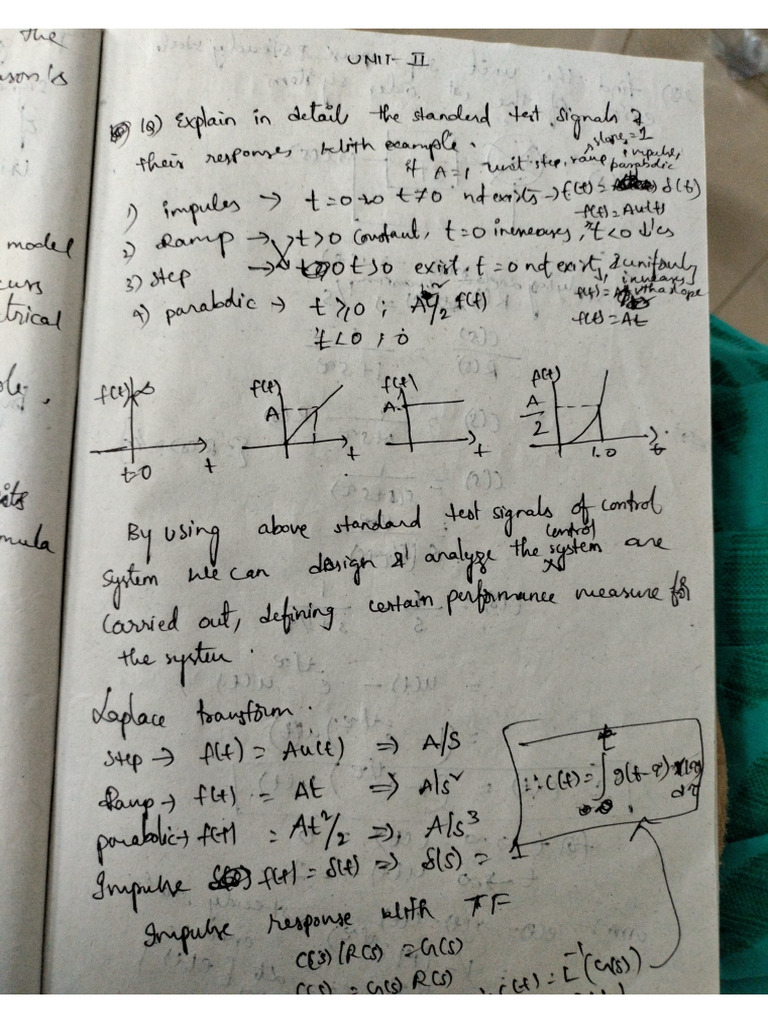 the
ason's
model
curs
trical
ole.
mula
UNIT- II
Q) Explain in detail the standerd test signals &
their responses with example. slope=1
if A=1 unit step, ramp, impulse, parabolic
1) impules → t=0 ∞ t≠0 not exists → f(t) = δ(t)
f(t)=Au(t)
2) Ramp → t>0 constant, t=0 increases, t<0
3) step → t>0 exist. t=0 not exist, & uniformly
increases
f(t)=At
4) parabolic → t≥0 ; A t²/2 f(t)
t<0 ; 0
f(t) ∞ f(t) A f(t) A A(t) A/2
t=0 t t t 1.0 t
By using above standard test signals of control
system we can design & analyze the control system are
carried out, defining certain performance measure for
the system.
Laplace transform.
step → f(t) = Au(t) ⇒ A/S
Ramp → f(t) = At ⇒ A/s²
parabolic → f(t) = At²/2 ⇒ A/s³
∴ c(t) = ∫ g(t-τ) r(τ) dτ
Impulse f(t) = δ(t) ⇒ δ(s) = 1
Impulse response with TF
C(S)/R(S) = G(S)
C(S) = G(S) R(S) c(t) = L⁻¹(G(S))